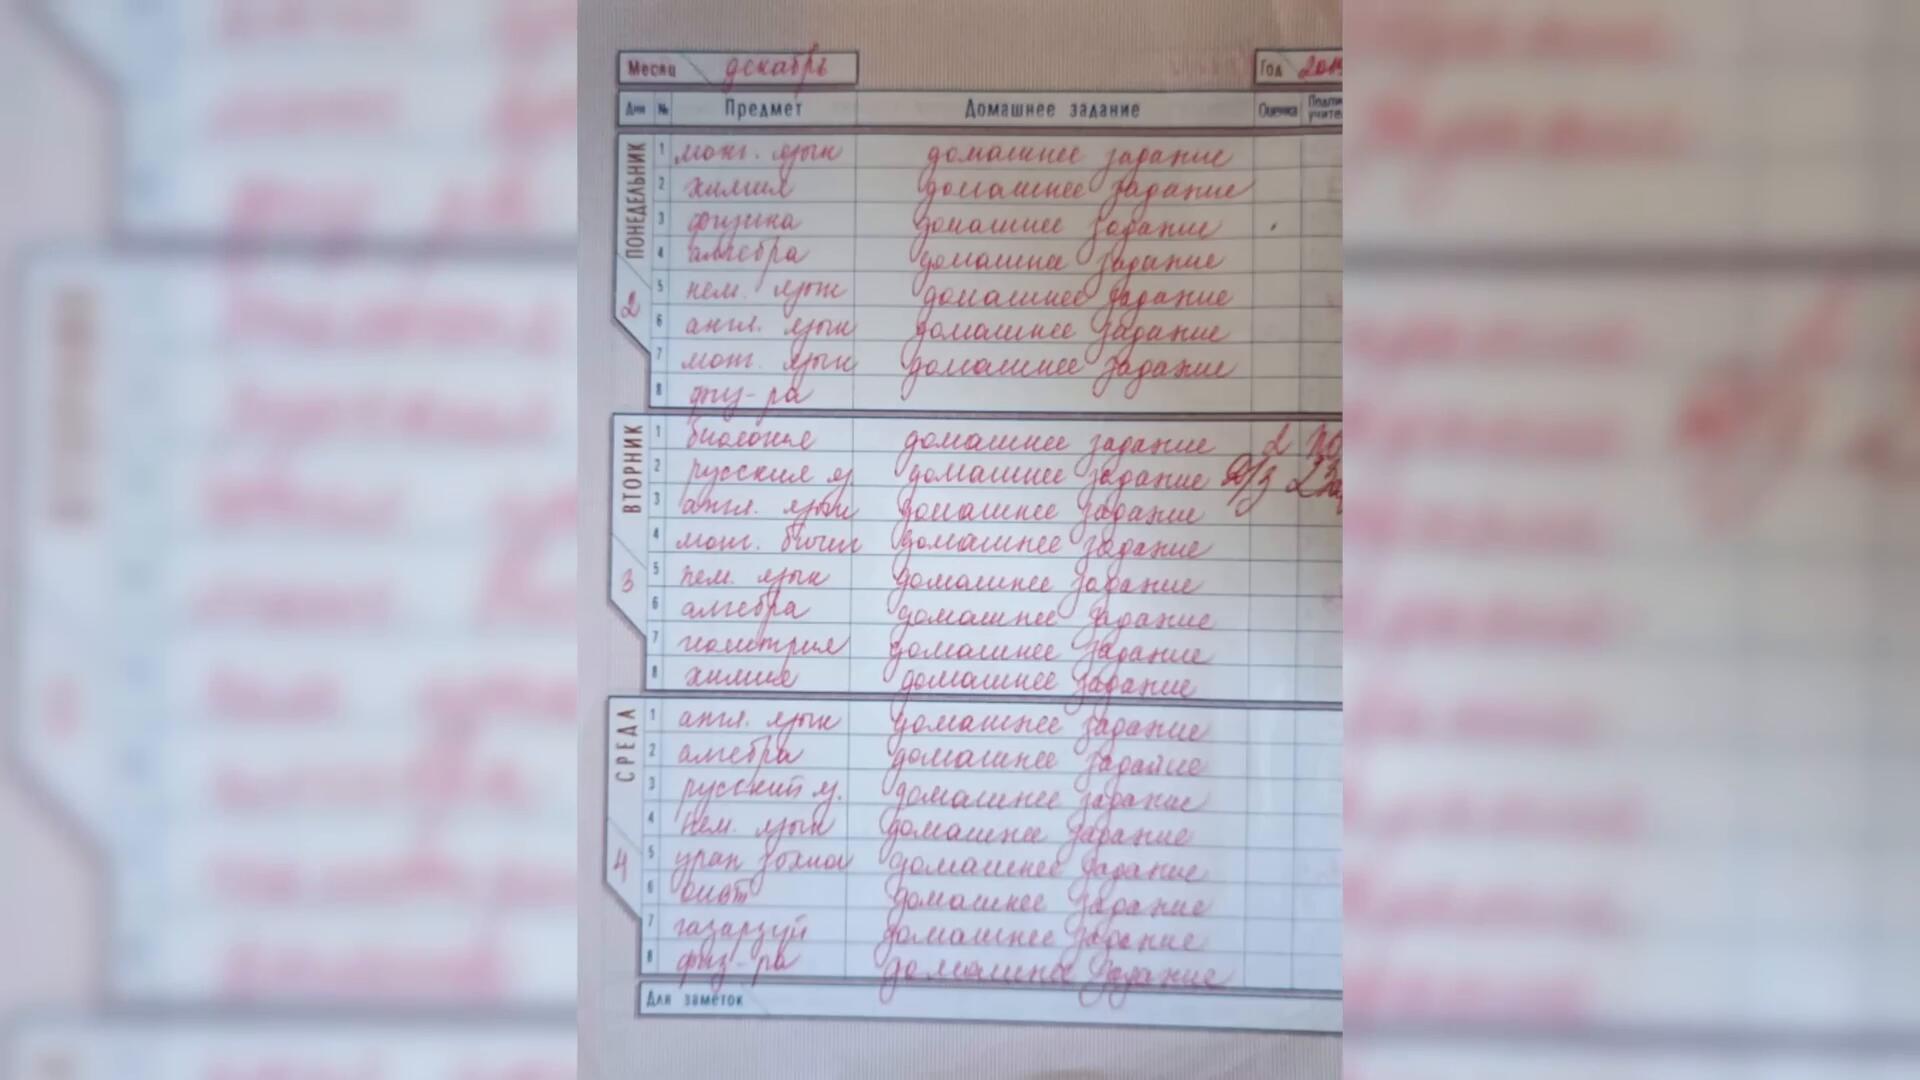 Месяц декабрь Год 2019
Дни № Предмет Домашнее задание Оценка
ПОНЕДЕЛЬНИК
2
1 монг. язык домашнее задание
2 химия домашнее задание
3 физика домашнее задание
4 алгебра домашне задание
5 нем. язык домашнее задание
6 англ. язык домашнее задание
7 монг. язык домашнее задание
8 физ-ра
ВТОРНИК
3
1 биология домашнее задание 2
2 русский яз домашнее задание Д/З 2
3 англ. язык домашнее задание
4 монг. бичиг домашнее задание
5 нем. язык домашнее задание
6 алгебра домашнее задание
7 геометрия домашнее задание
8 химия домашнее задание
СРЕДА
4
1 англ. язык домашнее задание
2 алгебра домашнее задание
3 русский яз. домашнее задание
4 нем. язык домашне задание
5 уран зохиол домашнее задание
6 домашнее задание
7 газарзүй домашнее задание
8 физ-ра домашнее задание
Для заметок